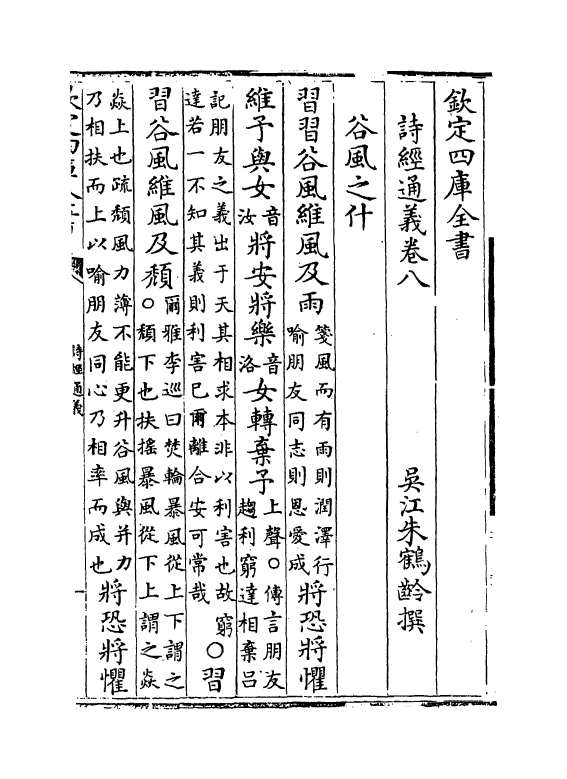 欽定四庫全書
詩經通義卷八　吳江朱鶴齡撰
谷風之什
習習谷風維風及雨箋風而有雨則潤澤行喻朋友同志則恩愛成將恐將懼
維予與女音汝將安將樂音洛女轉棄予上聲○傳言朋友趨利窮達相棄吕
記朋友之義出于天其相求本非以利害也故窮達若一不知其義則利害已爾離合安可常哉○習
習谷風維風及頹○爾雅李巡曰焚輪暴風從上下謂之頹下也扶搖暴風從下上謂之焱
焱上也疏頹風力薄不能更升谷風與并力乃相扶而上以喻朋友同心乃相率而成也將恐將懼
詩經通義
一